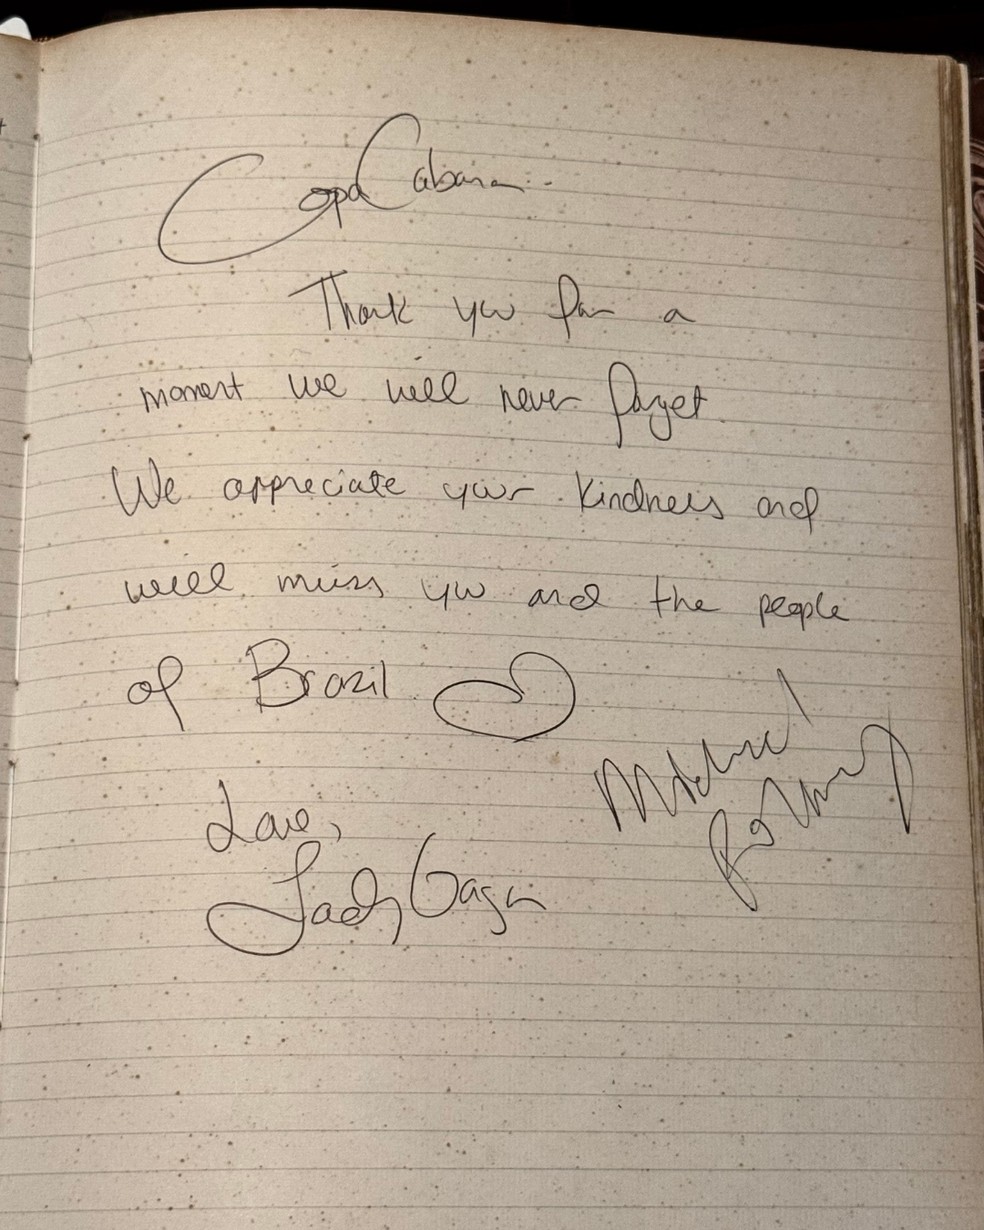 CopaCabana..
Thank you for a
moment we will never forget
We appreciate your kindness and
will miss you and the people
of Brazil
Love,
Lady Gaga
Michael